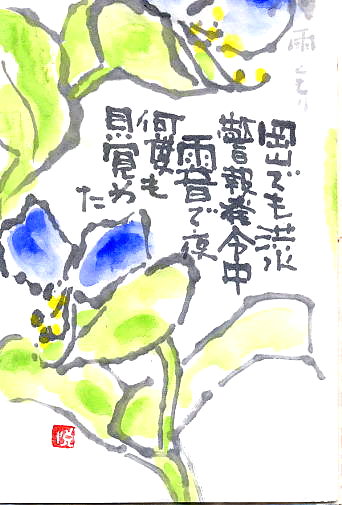 岡山でも洪水
警報発令中
雨音で夜
何度も
目覚め
た
悦